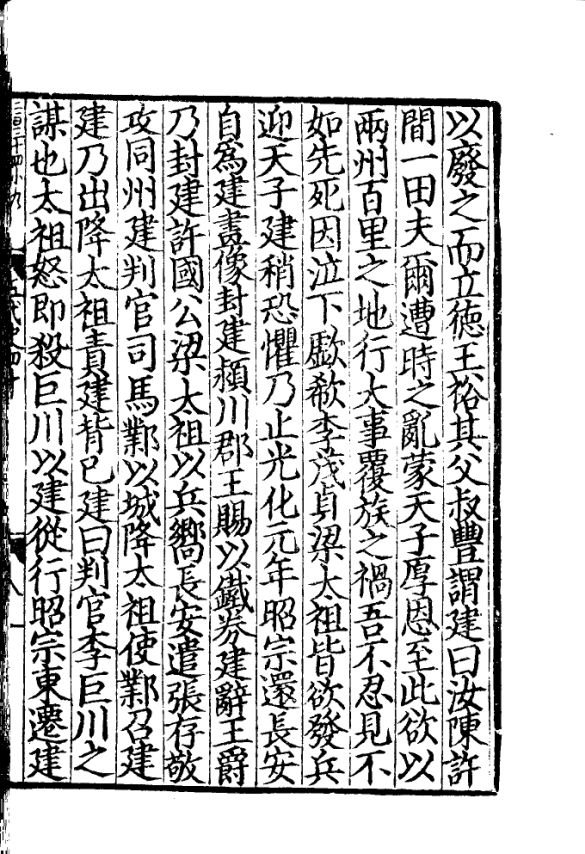 以廢之而立徳王裕其父叔豐謂建曰汝陳許
間一田夫爾遭時之亂蒙天子厚恩至此欲以
兩州百里之地行大事覆族之禍吾不忍見不
如先死因泣下歔欷李茂貞梁太祖皆欲發兵
迎天子建稍恐懼乃止光化元年昭宗還長安
自爲建畫像封建潁川郡王賜以鐵券建辭王爵
乃封建許國公梁太祖以兵嚮長安遣張存敬
攻同州建判官司馬鄴以城降太祖使鄴召建
建乃出降太祖責建背已建曰判官李巨川之
謀也太祖怒即殺巨川以建從行昭宗東遷建